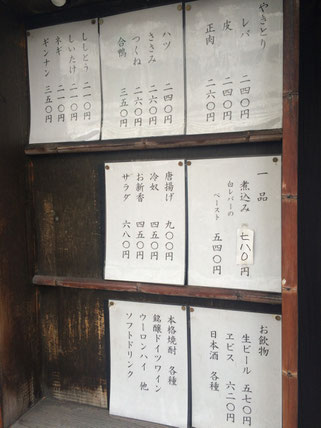 やきとり
レバ 二四〇円
皮 二四〇円
正肉 二六〇円
ハツ 二四〇円
ささみ 二六〇円
つくね 二六〇円
合鴨 三五〇円
ししとう 二一〇円
しいたけ 二一〇円
ネギ 二一〇円
ギンナン 三五〇円
一品
煮込み 七八〇円
白レバーの
ペースト 五四〇円
唐揚げ 九〇〇円
冷奴 四五〇円
お新香 四五〇円
サラダ 六八〇円
お飲物
生ビール 五七〇円
ヱビス 六二〇円
日本酒 各種
本格焼酎 各種
銘醸ドイツワイン
ウーロンハイ 他
ソフトドリンク